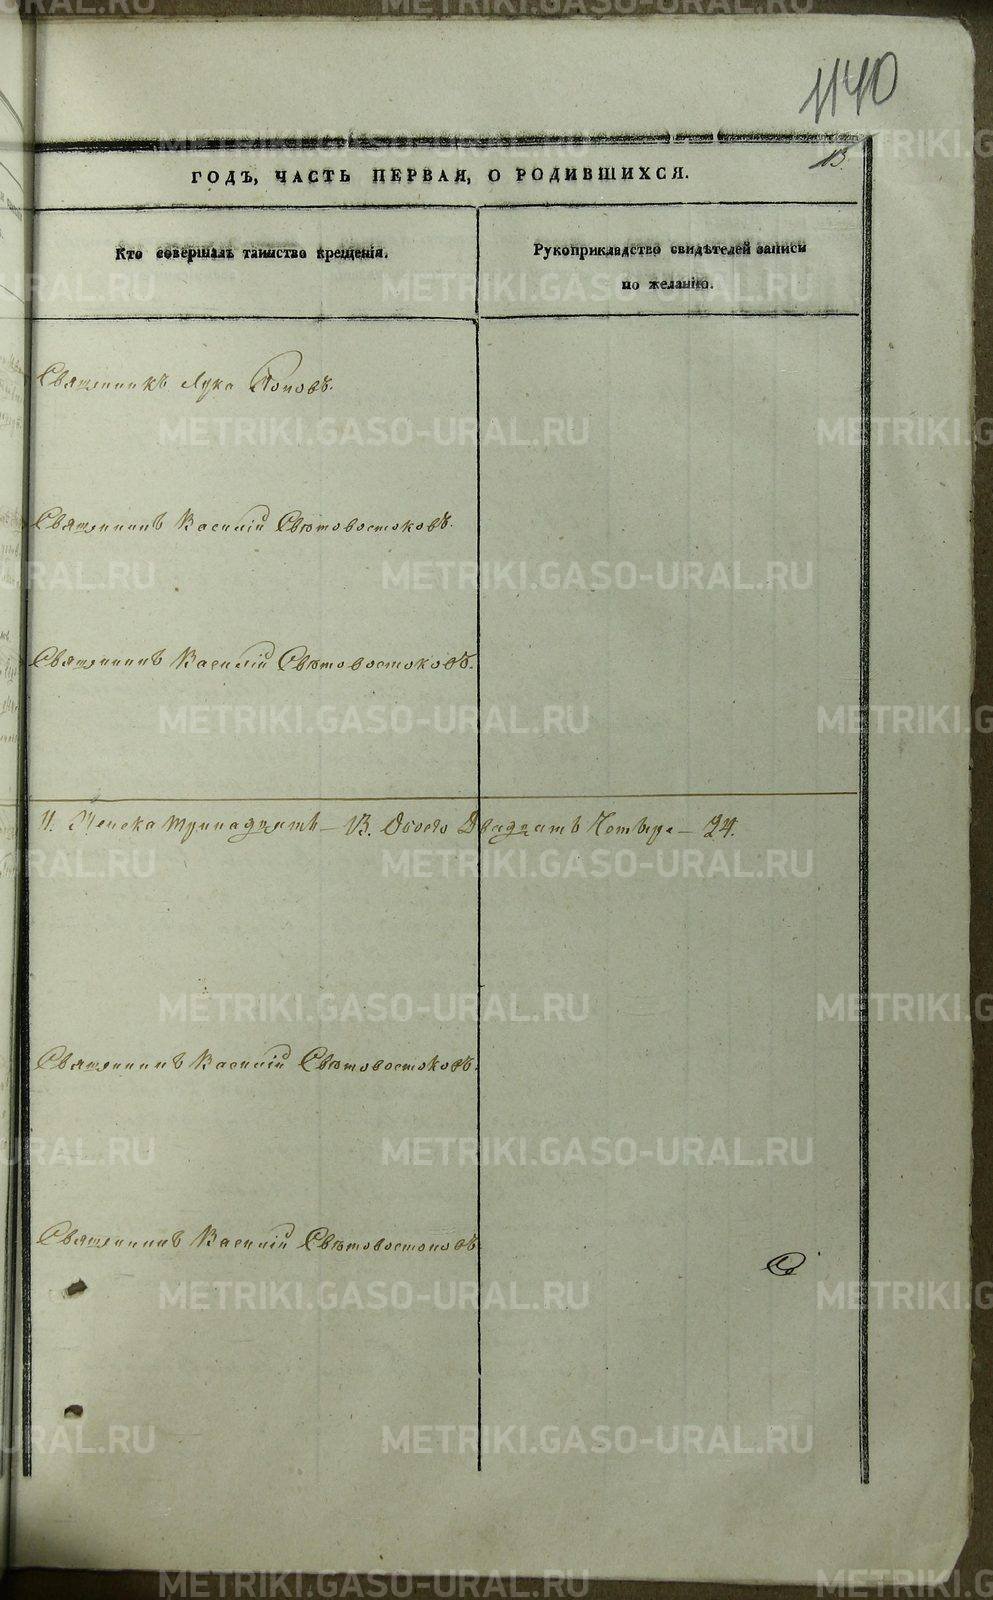 1140
13.
ГОДЪ, ЧАСТЬ ПЕРВАЯ, О РОДИВШИХСЯ.
Кто совершалъ таинство крещенія.
Рукоприкладство свидѣтелей записи
по желанію.
Священникъ Лука Поповъ.
Священникъ Василій Свѣтовостоковъ.
Священникъ Василій Свѣтовостоковъ.
И. Женска тринадцать — 13. Обоего Двадцать Четыре — 24.
Священникъ Василій Свѣтовостоковъ.
Священникъ Василій Свѣтовостоковъ
METRIKI.GASO-URAL.RU